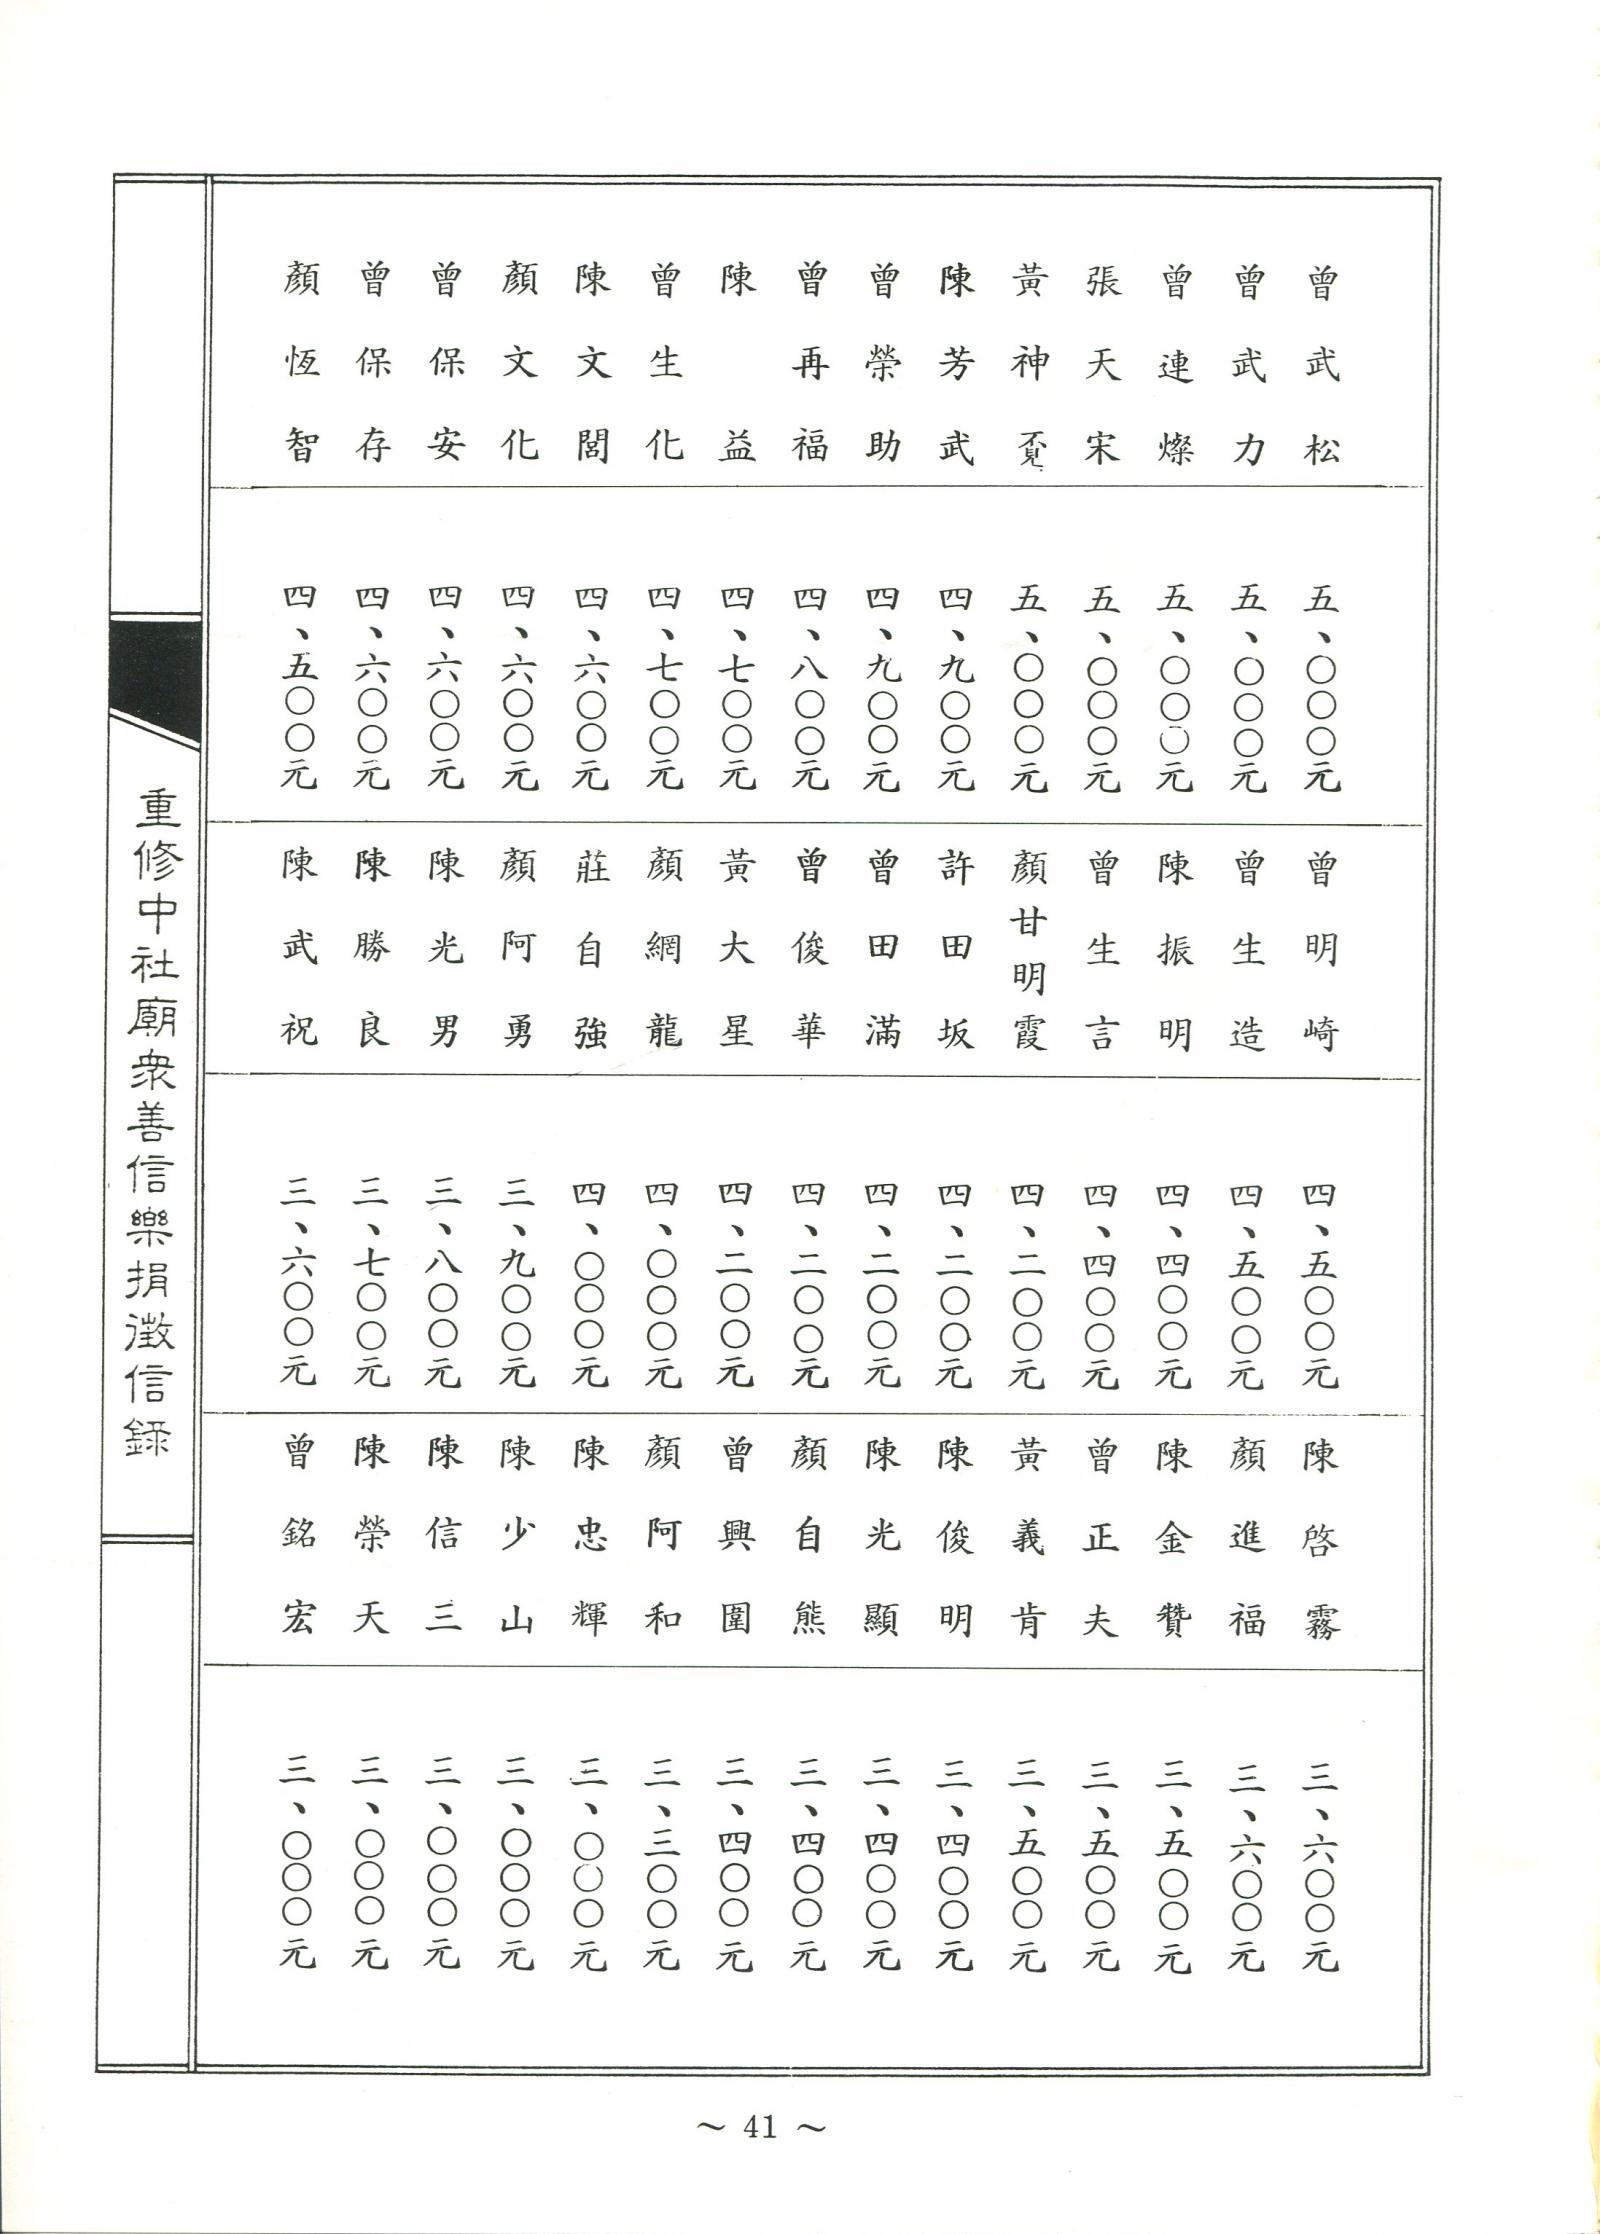 曾武松
曾武力
曾連燦
張天宋
黃神覔
陳芳武
曾榮助
曾再福
陳益
曾生化
陳文閣
顏文化
曾保安
曾保存
顏恆智
五、〇〇〇元
五、〇〇〇元
五、〇〇〇元
五、〇〇〇元
五、〇〇〇元
四、九〇〇元
四、九〇〇元
四、八〇〇元
四、七〇〇元
四、七〇〇元
四、六〇〇元
四、六〇〇元
四、六〇〇元
四、六〇〇元
四、五〇〇元
曾明崎
曾生造
陳振明
曾生言
顏甘明霞
許田坂
曾田滿
曾俊華
黃大星
顏網龍
莊自強
顏阿勇
陳光男
陳勝良
陳武祝
四、五〇〇元
四、五〇〇元
四、四〇〇元
四、四〇〇元
四、二〇〇元
四、二〇〇元
四、二〇〇元
四、二〇〇元
四、二〇〇元
四、〇〇〇元
四、〇〇〇元
三、九〇〇元
三、八〇〇元
三、七〇〇元
三、六〇〇元
陳啓霧
顏進福
陳金贊
曾正夫
黃義肯
陳俊明
陳光顯
顏自熊
曾興圍
顏阿和
陳忠輝
陳少山
陳信三
陳榮天
曾銘宏
三、六〇〇元
三、六〇〇元
三、五〇〇元
三、五〇〇元
三、五〇〇元
三、四〇〇元
三、四〇〇元
三、四〇〇元
三、四〇〇元
三、三〇〇元
三、〇〇〇元
三、〇〇〇元
三、〇〇〇元
三、〇〇〇元
三、〇〇〇元
重修中社廟衆善信樂捐徵信錄
～ 41 ～